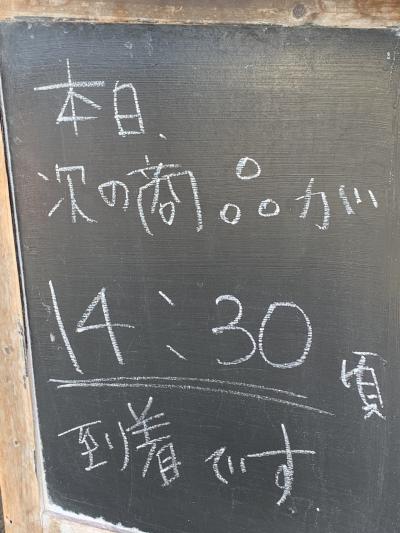 本日、
次の商品が
14:30
頃
到着です